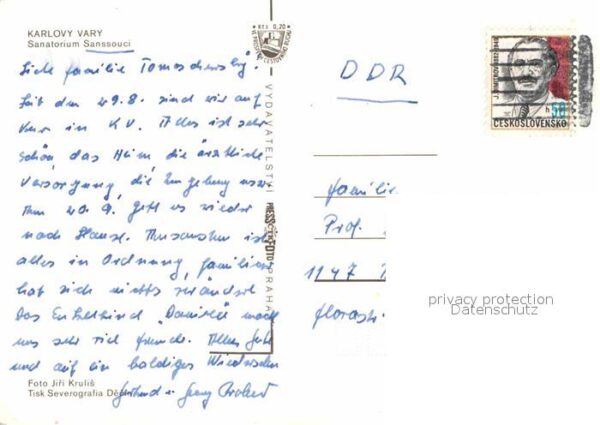 KARLOVY VARY
Sanatorium Sanssouci
Kčs 0,20
VE PROSPĚCH CESTOVNÍHO RUCHU
Liebe Familie
Seit dem 29.8. sind wir auf
Kur in K.V. Alles ist sehr
schön, das Heim, die ärztliche
Versorgung, die Umgebung usw.
Am 20.9. geht es wieder
nach Hause. Ansonsten ist
alles in Ordnung, familiär
hat sich nichts verändert
Das Enkelkind "Daniela" macht
uns sehr viel Freude. Alles Gute
und auf ein baldiges Wiedersehen
Gerhard u.
Foto Jiří Kruliš
Tisk Severografia
VYDAVATELSTVÍ
PRESSFOTO
PRAHA
J. DIMITROV 1882-1949
50 h
ČESKOSLOVENSKO
DDR
Familie
Prof.
1147
Florastr.
privacy protection
Datenschutz